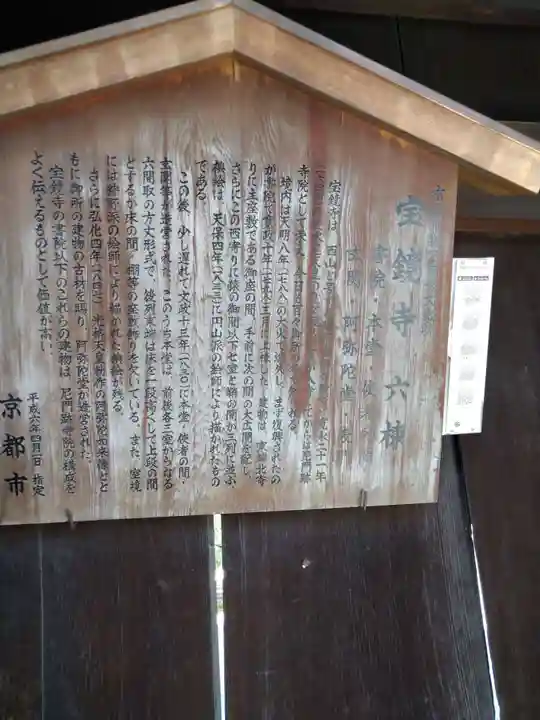 宝鏡寺 六棟
書院・本堂・使者の間
玄関・阿弥陀堂・表門
宝鏡寺は、西山と号
寛永二十一年
から尼門跡
寺院として栄え、今日も百々御所の名で
境内は天明八年(一七八八)の大火で類焼し、まず復興されたの
が書院で寛政十年(一七九八)三月に上棟した。建物は、東西北寺
りに主座敷である御座の間、手前に次の間の大広間を配し、
さらにこの西寄りに猿の御間以下七室と鞘の間が三列に並ぶ
襖絵は、天保四年(一八三三)に円山派の絵師により描かれたもの
である。
この後、少し遅れて文政十三年(一八三〇)に本堂・使者の間・
玄関等が造営された。このうち本堂は、前後各三室からなる
六間取の方丈形式で、後列東端は床を一段持くして上段の間
とするが床の間、棚等の座敷飾りを欠いている。また、室境
には狩野派の絵師により描かれた襖絵が残る。
さらに弘化四年(一八四七)、光格天皇勅作の阿弥陀如来像とと
もに御所の建物の古材を賜り、阿弥陀堂が造営された。
宝鏡寺の書院以下のこれらの建物は、尼門跡寺院の構成を
よく伝えるものとして価値が高い。
平成六年四月一日 指定
京都市